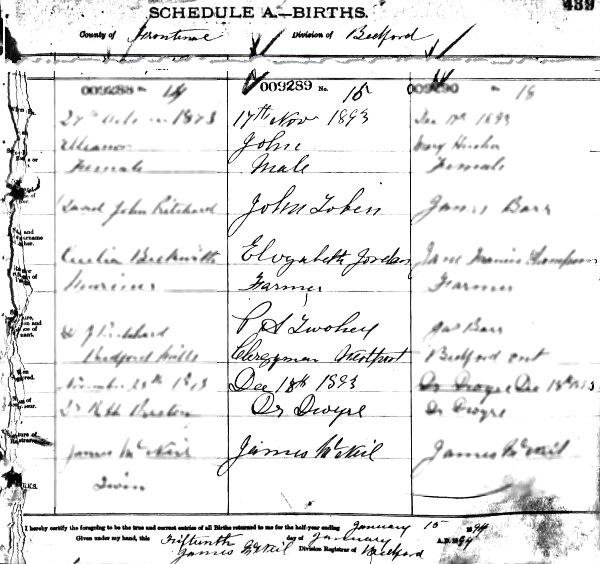 439
SCHEDULE A.—BIRTHS.
County of Frontenac Division of Bedford
009288 No. 14 009289 No. 15 009290 18
1893 17th Nov 1893 Dec 1893
Eleanor John Mary
Female Male Female
David John Pritchard John Tobin James Barr
Cecilia Beckwith Elizabeth Jordan Jane Francis Thompson
Farmer Farmer
D J Pritchard P A Twohey Jas Barr
Bedford Mills Clergyman Westport Bedford Ont
November 28th 1893 Dec 18th 1893 Dr Dwyre Dec 18th 1893
Dr Dwyre Dr Dwyre
James McNeil James McNeil James McNeil
Twin
I hereby certify the foregoing to be the true and correct entries of all Births returned to me for the half-year ending January 15 1894
Given under my hand, this Fifteenth day of January A.D. 1894
James McNeil Division Registrar of Bedford